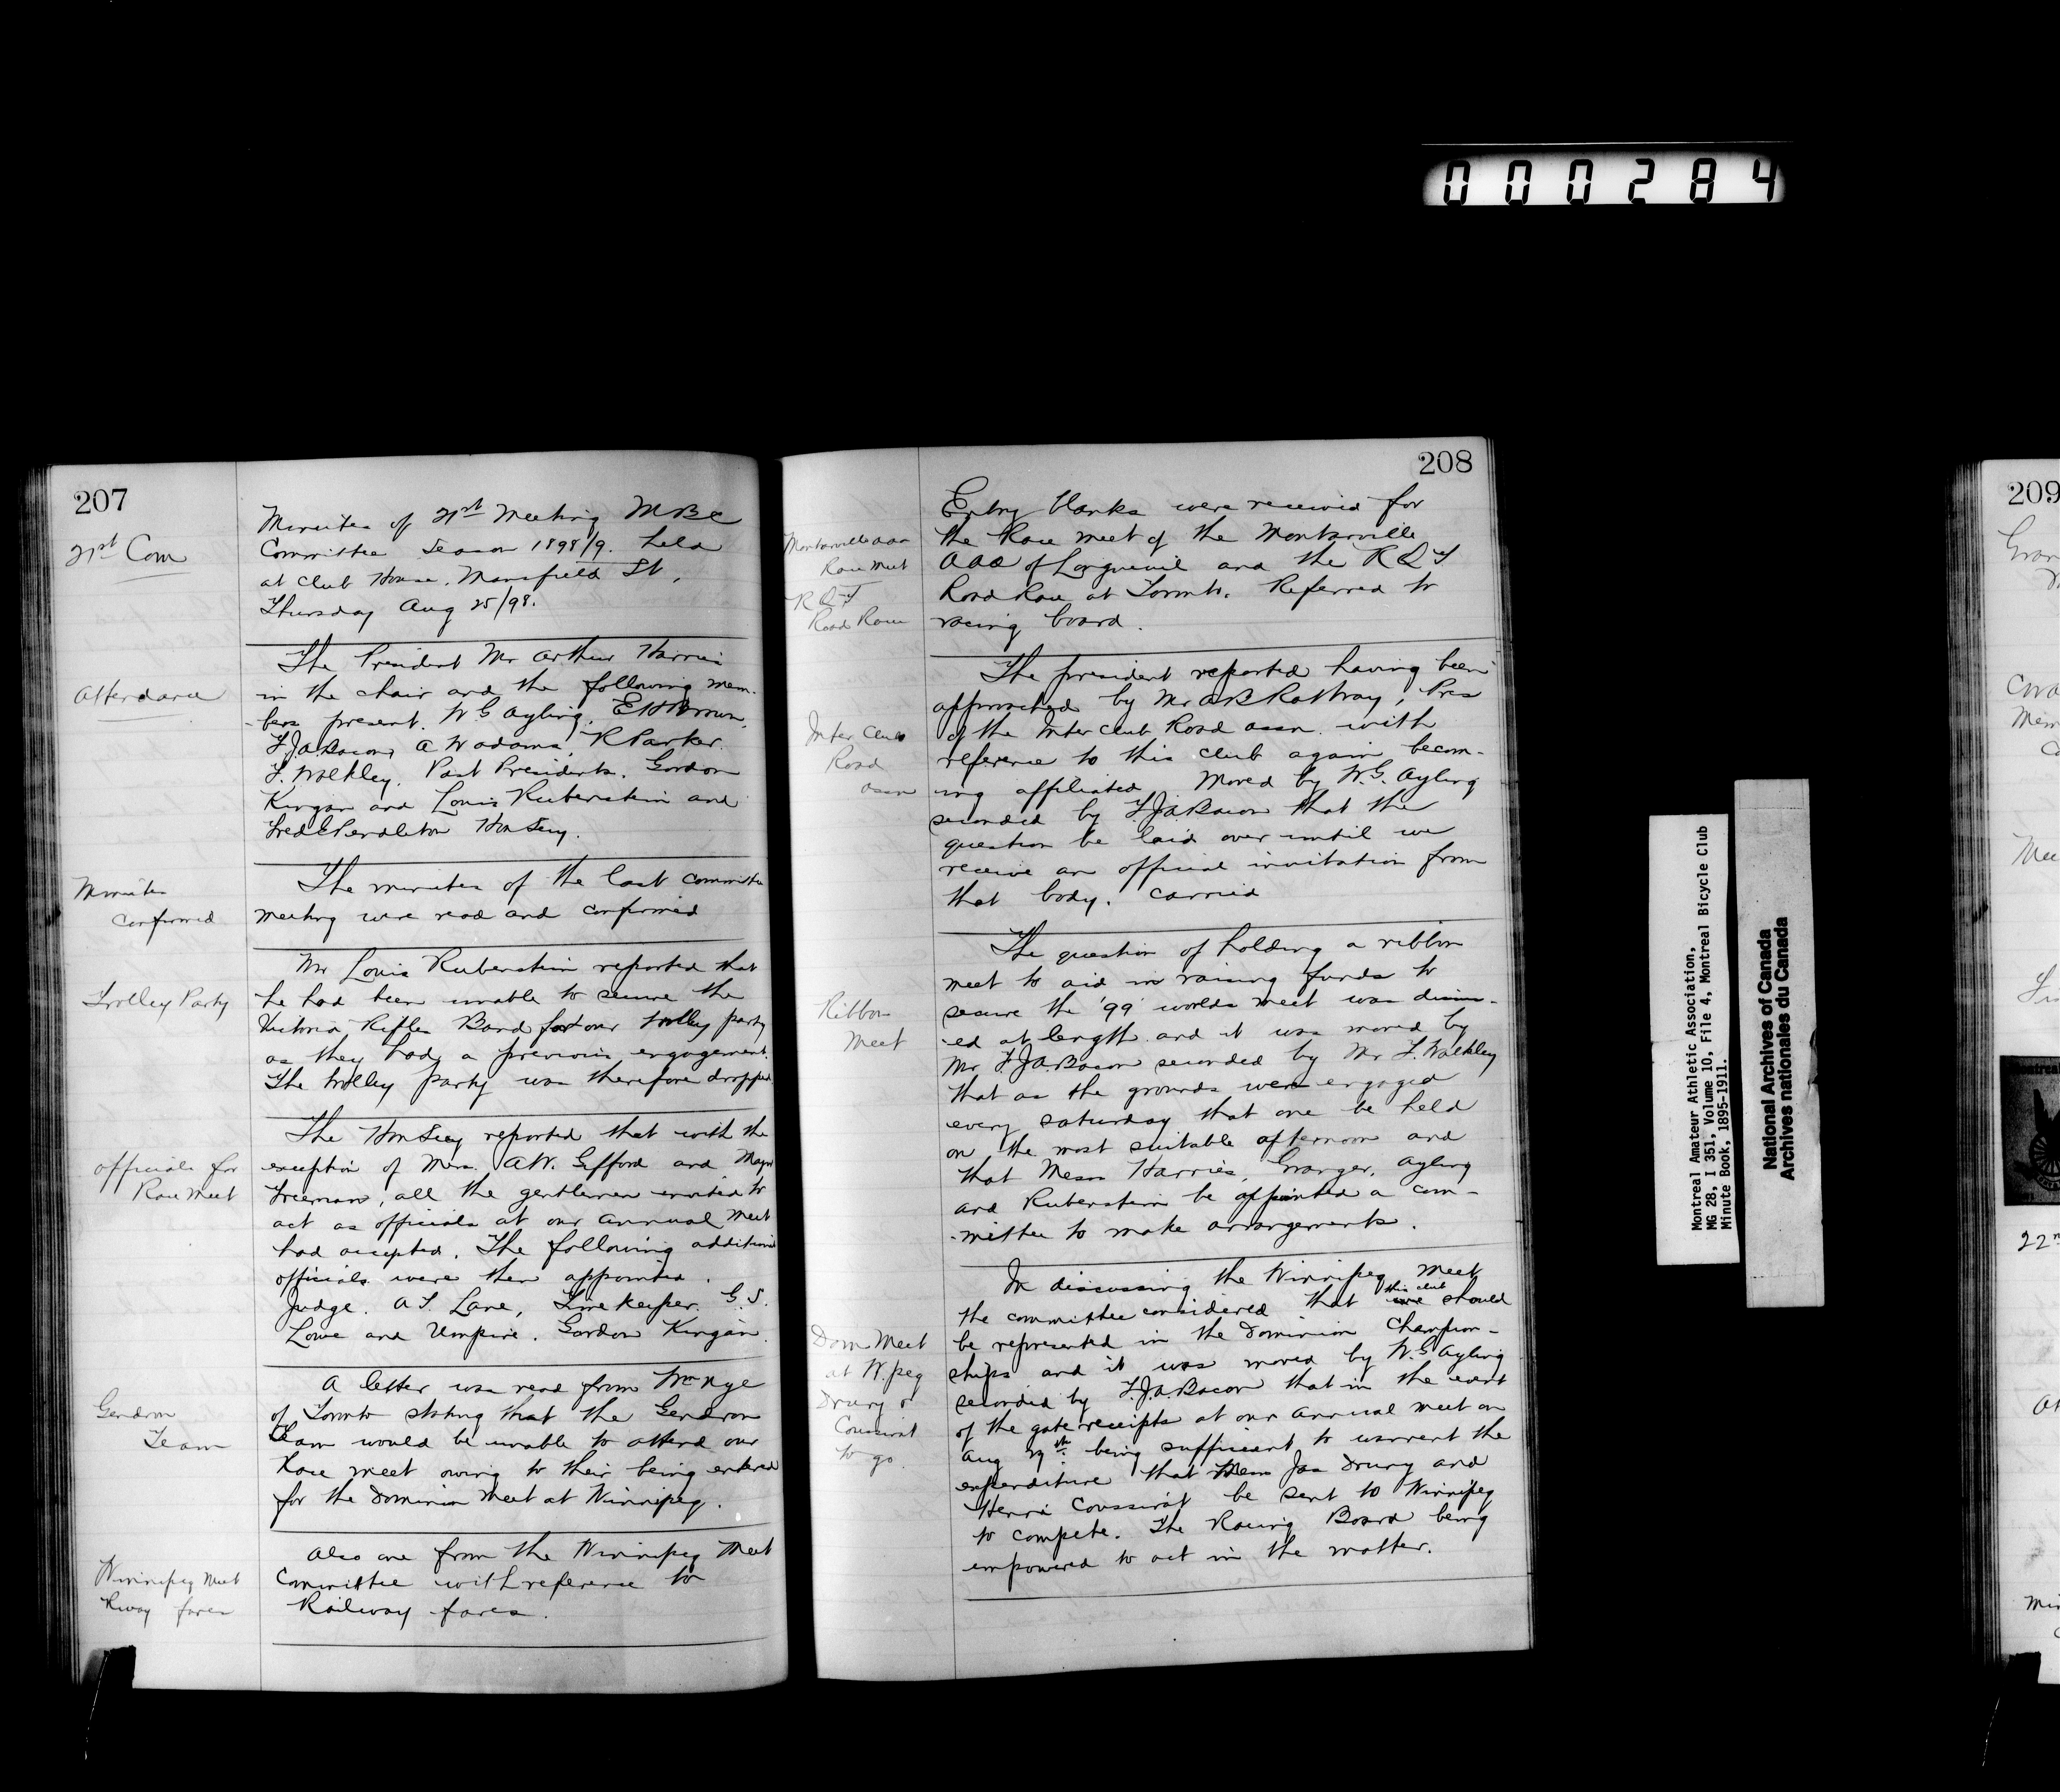 000284
207
21st Com
Minutes of 21st Meeting MBC
Committee Season 1898/9. held
at Club House, Mansfield St,
Thursday Aug 25/98.
Attendance
The President Mr Arthur Harries
in the chair and the following mem-
-bers present. W G Ayling, E H Brown,
F.J.A. Bacon, A W Adams, R Parker.
F. Walkley. Past Presidents. Gordon
Kingan and Louis Rubenstein and
Fred E Pendleton Hon Secy.
Minutes
Confirmed
The minutes of the last committee
meeting were read and confirmed
Trolley Party
Mr Louis Rubenstein reported that
he had been unable to secure the
Victoria Rifles Band for our trolley party
as they had a previous engagement.
The trolley party was therefore dropped.
Officials for
Race Meet
The Hon Secy reported that with the
exception of Mess. A.W. Gifford and Major
Freeman, all the gentlemen invited to
act as officials at our annual meet
had accepted. The following additional
officials were then appointed.
Judge. A T. Lane, Time Keeper. G. S.
Lowe and Umpire. Gordon Kingan.
Gendron
Team
A letter was read from Wm Nye
of Toronto stating that the Gendron
team would be unable to attend our
Race meet owing to their being entered
for the Dominion Meet at Winnipeg.
Winnipeg Meet
Rway fares
Also one from the Winnipeg Meet
Committee with reference to
Railway fares.
208
Montarville AAA
Race Meet
R Q T
Road Race
Entry blanks were received for
the Race meet of the Montarville
AAA of Longueuil and the R Q T
Road Race at Toronto. Referred to
racing board.
Inter Club
Road
Assn
The president reported having been
approached by Mr A B Rattray, Pres
of the Inter Club Road Assn. with
reference to this club again becom-
ing affiliated. Moved by W.G. Ayling
seconded by F.J.A. Bacon that the
question be laid over until we
receive an official invitation from
that body. Carried
Ribbon
Meet
The question of holding a ribbon
meet to aid in raising funds to
secure the '99' worlds meet was discuss-
-ed at length and it was moved by
Mr F.J.A Bacon seconded by Mr F. Walkley
that as the grounds were engaged
every Saturday that one be held
on the most suitable afternoon and
that Mess Harries, Granger, Ayling
and Rubenstein be appointed a com-
-mittee to make arrangements.
Dom Meet
at W.peg
Drury &
Coussirat
to go.
In discussing the Winnipeg Meet
the committee considered that this club should
be represented in the Dominion Champion-
ships and it was moved by W.G Ayling
seconded by F.J.A. Bacon that in the event
of the gate receipts at our annual meet on
Aug 27th being sufficient to warrent the
expenditure that Mess Jas Drury and
Henri Coussirat be sent to Winnipeg
to compete. The Racing Board being
empowered to act in the matter.
Montreal Amateur Athletic Association,
MG 28, I 351, Volume 10, File 4, Montreal Bicycle Club
Minute Book, 1895-1911.
National Archives of Canada
Archives nationales du Canada
209
22n